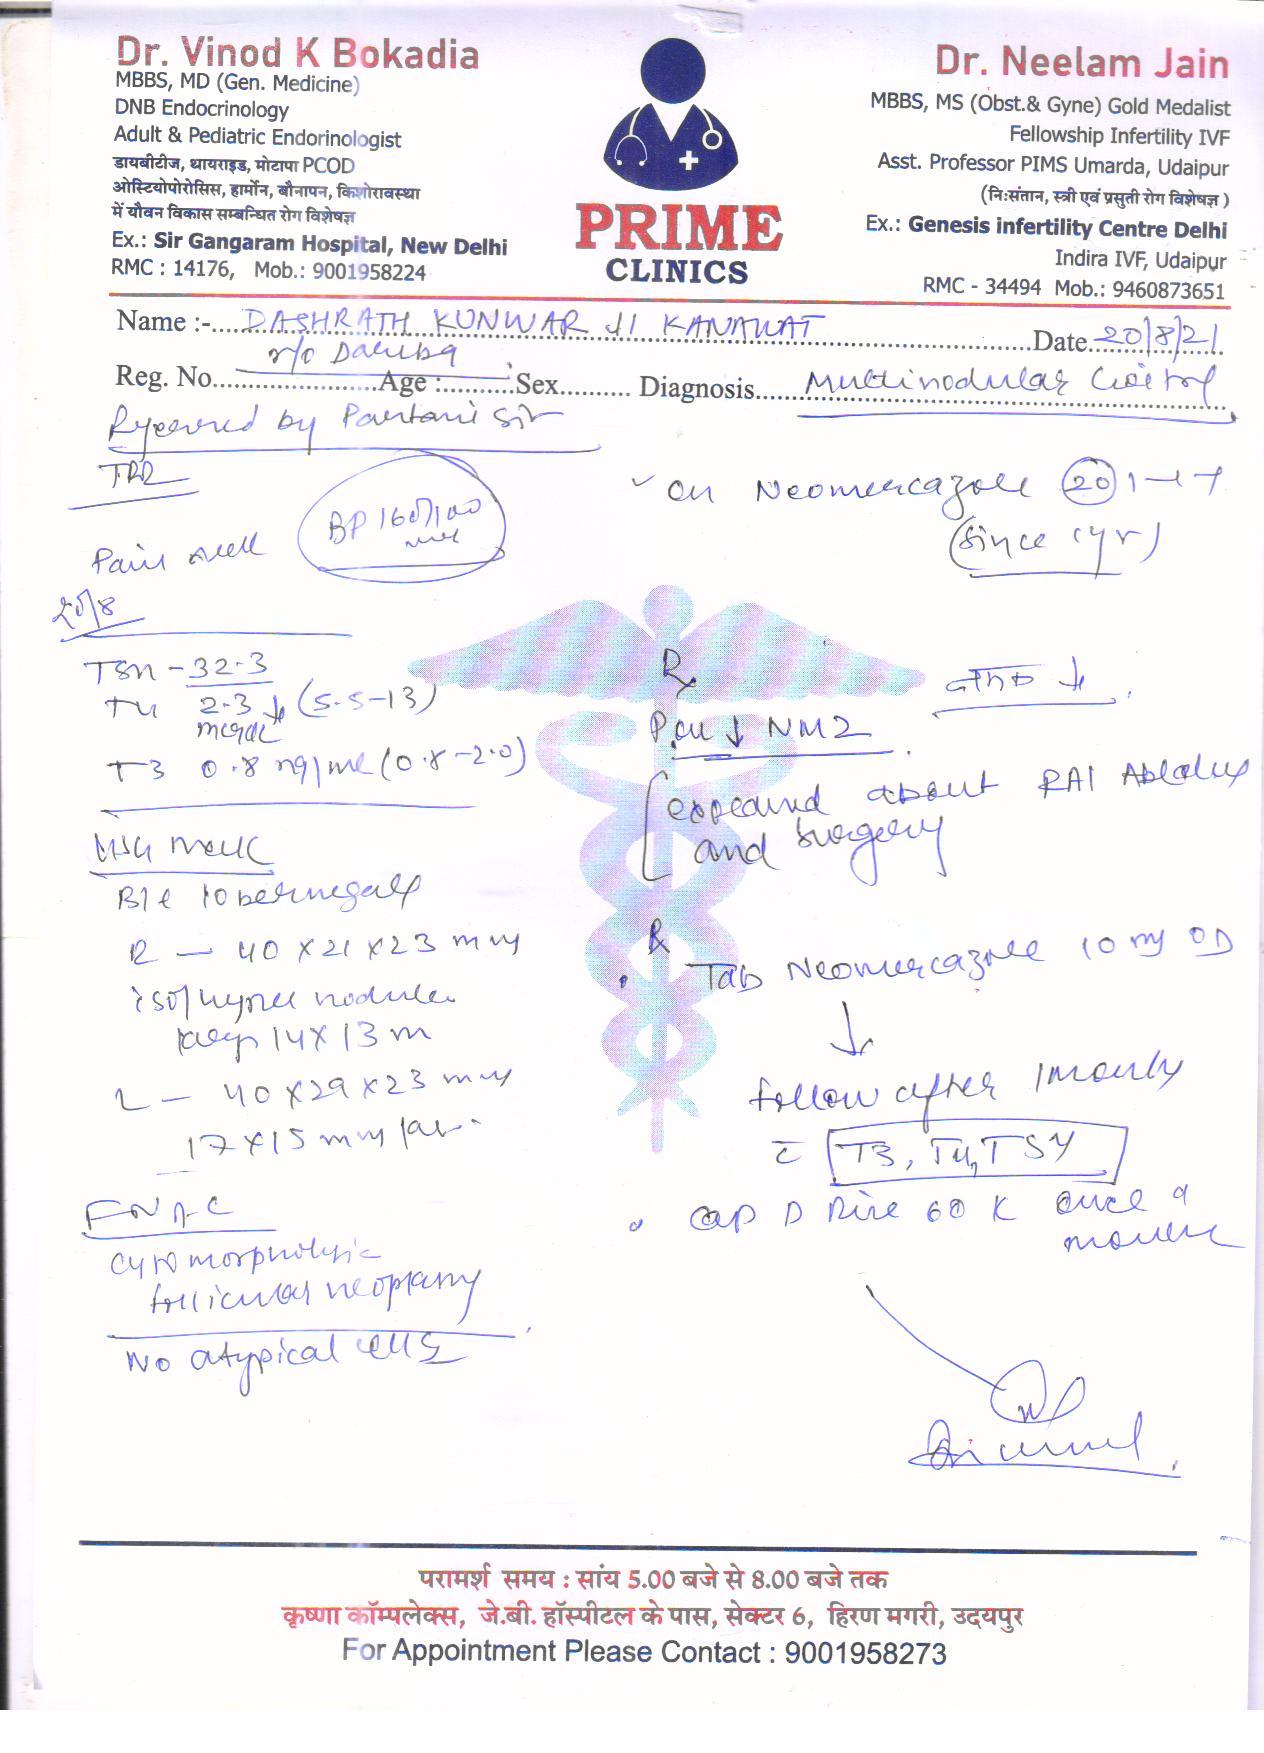 Dr. Vinod K Bokadia
MBBS, MD (Gen. Medicine)
DNB Endocrinology
Adult & Pediatric Endorinologist
डायबीटीज, थायराइड, मोटापा PCOD
ओस्टियोपोरोसिस, हार्मोन, बौनापन, किशोरावस्था
में यौवन विकास सम्बन्धित रोग विशेषज्ञ
Ex.: Sir Gangaram Hospital, New Delhi
RMC : 14176, Mob.: 9001958224
PRIME
CLINICS
Dr. Neelam Jain
MBBS, MS (Obst.& Gyne) Gold Medalist
Fellowship Infertility IVF
Asst. Professor PIMS Umarda, Udaipur
(नि:संतान, स्त्री एवं प्रसुती रोग विशेषज्ञ )
Ex.: Genesis infertility Centre Delhi
Indira IVF, Udaipur
RMC - 34494 Mob.: 9460873651
Name :- DASHRATH KUNWAR JI KANAWAT Date 20/8/21
r/o Dariba
Reg. No. Age : Sex Diagnosis Multinodular Goitre
by Sir
BP 160/100
Pain neck
20/8
TSH - 32.3
T4 2.3 ↓ (5.5-13)
T3 0.8 ng/ml (0.8-2.0)
USG neck
B/L lobe
R - 40 x 21 x 23 mm
iso/hyper nodule
14 x 13 m
L - 40 x 29 x 23 mm
17 x 15 mm
FNAC
follicular
No atypical cells
✓ on Neomercazole 20 1-1-1
(since 1yr)
Rx
↓ NM2
about RAI
and surgery
Rx
. Tab Neomercazole 10 mg OD
↓
follow after 1 monthly
c̄ T3, T4, TSH
. cap D Rise 60 K once a
month
परामर्श समय : सांय 5.00 बजे से 8.00 बजे तक
कृष्णा कॉम्पलेक्स, जे.बी. हॉस्पीटल के पास, सेक्टर 6, हिरण मगरी, उदयपुर
For Appointment Please Contact : 9001958273